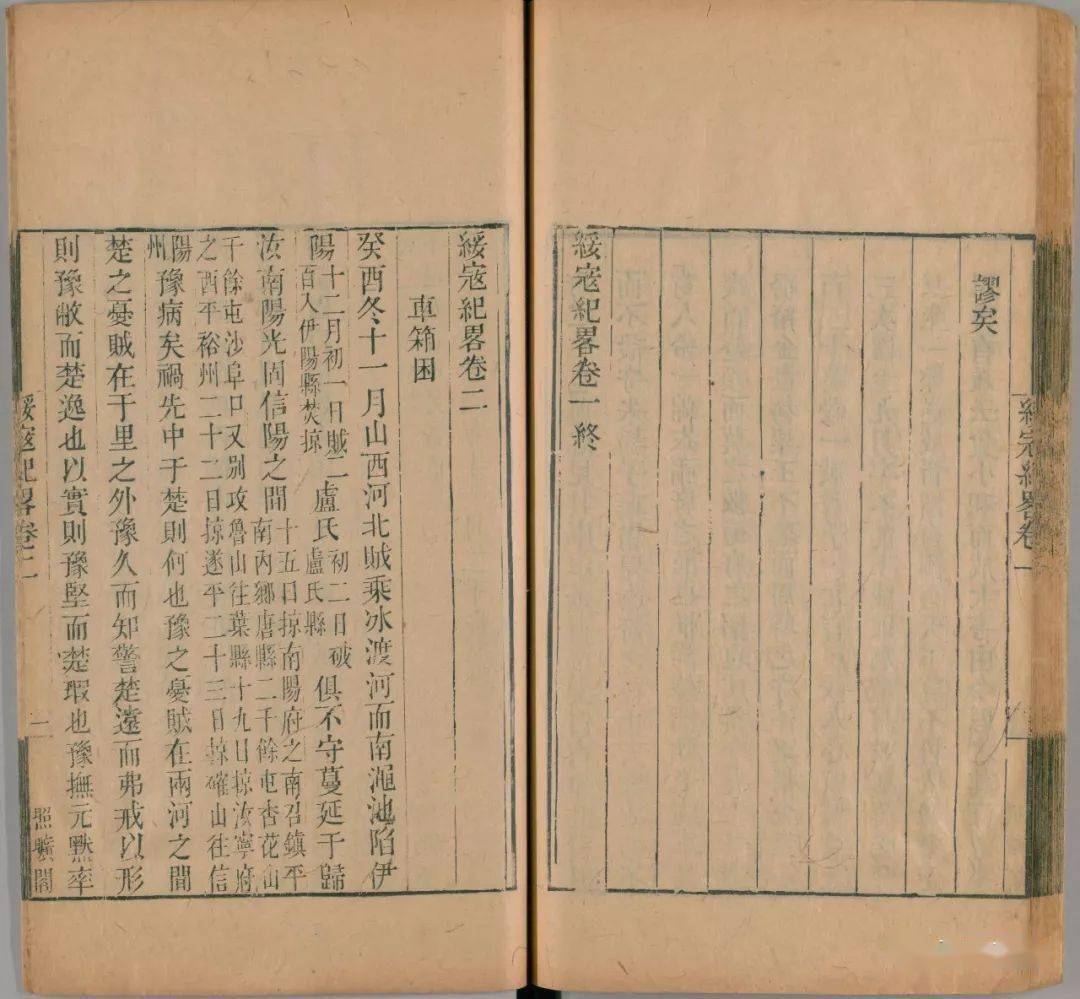 綏寇紀畧卷一
謬矣
綏寇紀畧卷一終
綏寇紀畧卷二
車箱困
癸酉冬十一月山西河北賊乘冰渡河而南澠池陷伊
陽十二月初一日賊二百入伊陽縣焚掠盧氏初二日破盧氏縣俱不守蔓延于歸
汝南陽光固信陽之間十五日掠南陽府之南召鎮平南内鄉唐縣二千餘屯杏花山
千餘屯沙阜口又别攻魯山往葉縣十九日掠汝寧府之西平裕州二十二日掠遂平二十三日掠確山往信
陽州豫病矣禍先中于楚則何也豫之憂賊在兩河之間
楚之憂賊在千里之外豫久而知警楚遠而弗戒以形
則豫敝而楚逸也以實則豫堅而楚瑕也豫撫元黙率
綏寇紀畧卷二
一
照曠閣